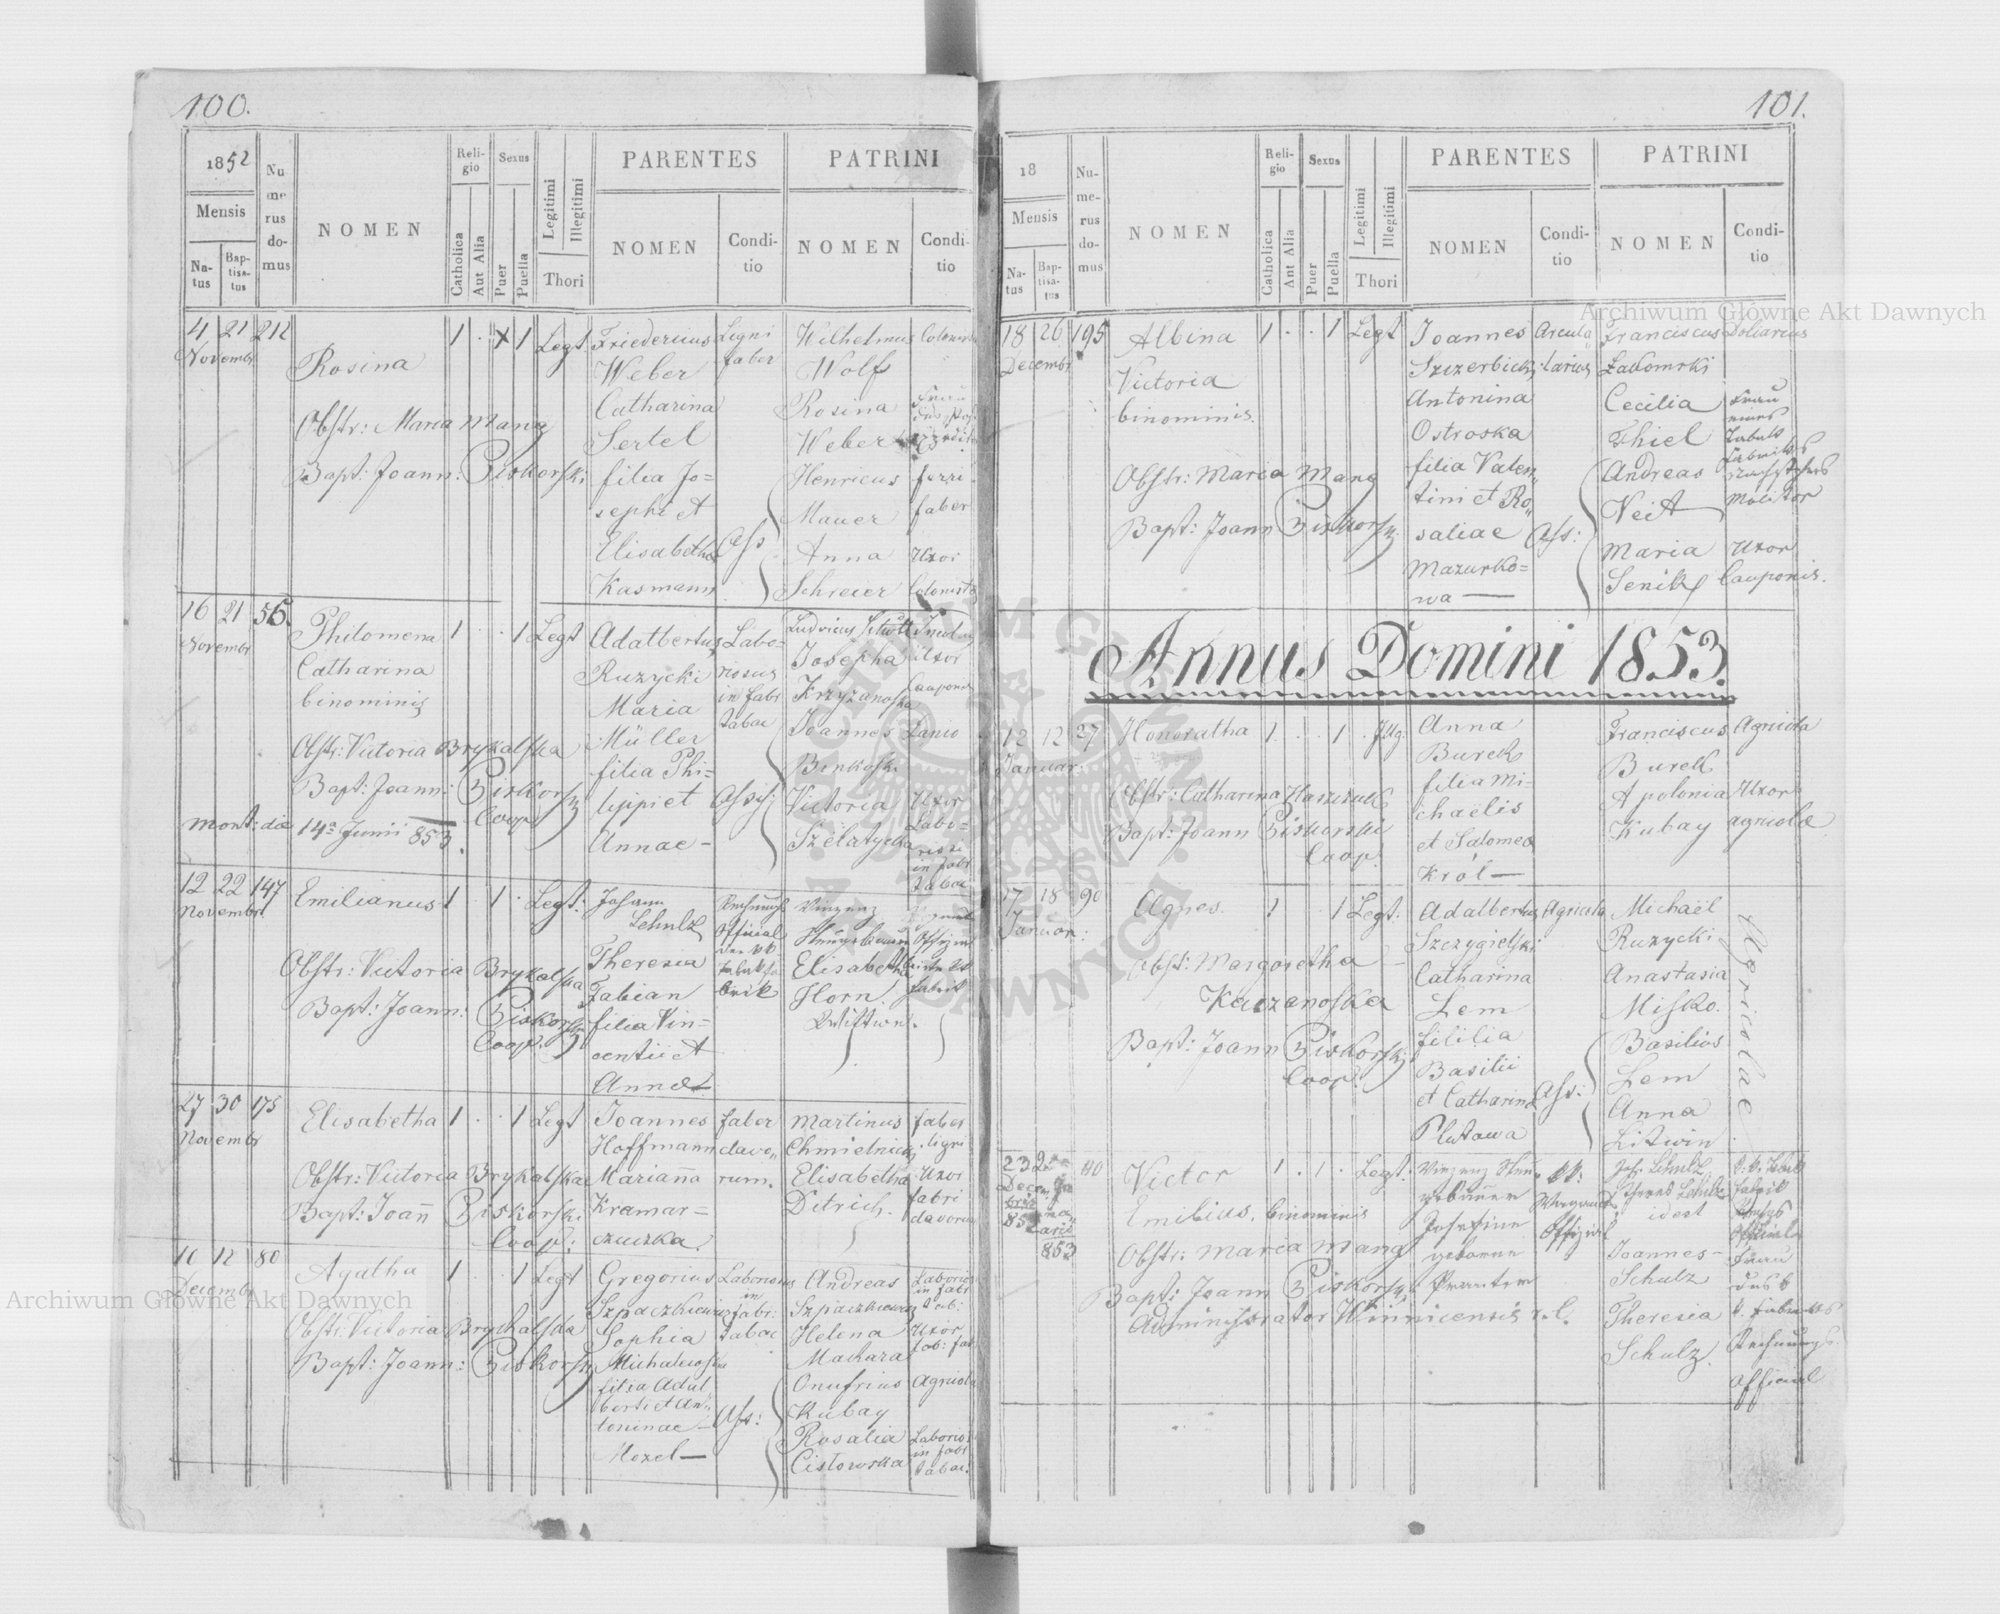 100.
1852
Mensis
Na-
tus
Bap-
tisa-
tus
Nu
me
rus
do-
mus
NOMEN
Reli-
gio
Catholica
Aut Alia
Sexus
Puer
Puella
Legitimi
Illegitimi
Thori
PARENTES
NOMEN
Condi-
tio
PATRINI
NOMEN
Condi-
tio
4 21 212
Novembr
Rosina
Obstr: Maria Mang
Bapt: Joann: Piskorski
1 . x 1 Legt.
Friedericus
Weber
Catharina
Sertel
filia Jo=
sephi et
Elisabetha
Kasmann
Ligni
faber
Ass
Wilhelmus
Wolf
Rosina
Weber
Henricus
Mauer
Anna
Schreier
ferri
faber
Uxor
16 21 56.
Novembr
Philomena
Catharina
binominis
Obstr: Victoria Brykalska
Bapt: Joann: Piskorski
Coop
Mort: die 14a Junii 853.
1 . . 1 Legt
Adalbertus
Ruzycki
Maria
Müller
filia Phi=
lippi et
Annae -
Labo=
riosus
in fabr
tabac
Assis:
Josepha
Krzyzanoska
Joannes
Binkoski
Victoria
Uxor
Lanio
Uxor
Labo=
in fabr
tabac
12 22 147
Novembr
Emilianus
Obstr: Victoria Brykalska
Bapt: Joann: Piskorski
Coop.
1 . 1 . Legt:
Johann
Schulz
Theresia
Fabian
filia Vin=
centii et
Annae
Official
Vinzenz
Elisabetha
Horn.
27 30 175
Novembr
Elisabetha
Obstr: Victoria Brykalska
Bapt: Joañ Piskorski
Coop:
1 . . 1 Legt
Joannes
Hoffmann
Marianna
Kramar=
czuczka.
faber
clavo„
rum.
Martinus
Chmielnicki
Elisabetha
Ditrich.
faber
ligni
Uxor
fabri
10 12 80
Decembr
Agatha
Obstr: Victoria Brykalska
Bapt: Joann: Piskorski
1 . . 1 Legt
Gregorius
Szpaczkiewicz
Sophia
filia Adal
berti et An„
toninae
Mozel—
Laboriosus
in
fabr:
tabac
Ass:
Andreas
Szpaczkiewicz
Helena
Machara
Onufrius
Kubay
Rosalia
Cistowska
Laborios
in fabr
tab:
Uxor
Agricola
Laborios
in fabr
tabac.
101.
18
Mensis
Na-
tus
Bap-
tisa-
tus
Nu-
me-
rus
do-
mus
NOMEN
Reli-
gio
Catholica
Ant Alia
Sexus
Puer
Puella
Legitimi
Illegitimi
Thori
PARENTES
NOMEN
Condi-
tio
PATRINI
NOMEN
Condi-
tio
18 26 195
Decembr
Albina
Victoria
binominis.
Obstr: Maria Mang
Bapt: Joann Piskorski
1 . . 1 Legt
Joannes
Szczerbicki
Antonina
Ostroska
filia Valen„
tini et Ro„
saliae
Mazurko=
wa —
Arcula„
larius
Ass:
Franciscus
Zadomski
Cecilia
Thiel
Andreas
Veit
Maria
Senik
Doliarius
Frau
eines
Tabak
Molitor
Uxor
Cauponis.
Annus Domini 1853.
12 12 27
Januar:
Honoratha
Obstr: Catharina Haszczuk
Bapt: Joann Piskorski
Coop:
1 . . 1 . Illg.
Anna
Burek
filia Mi=
chaëlis
et Salomea
Król—
Franciscus
Burek
Apolonia
Kubay
Agricola
Uxor
agricolae
17 18 90
Januar:
Agnes.
Obst: Margaretha
Kaczanoska
Bapt: Joann Piskorski
Coop:
1 . . 1 Legt:
Adalbertus
Szczygielski
Catharina
Lem
fililia
Basilii
et Catharina
Plutawa
Agricola
Ass:
Michaël
Ruzycki
Anastasia
Misko.
Basilius
Lem
Anna
Litwin
Agricolae
23
Decem
bris
852
853
Victor
Emilius, binominis
Obstr: Maria Mang
Bapt: Joann Piskorski
Administrator Winnicensis r.l.
1 . 1 . Legt.
Vinzenz
Josefine
geborene
Offizial
Joh: Schulz
Theres Schulz
idest
Joannes
Schulz
Theresia
Schulz.
Frau
des
Rechnungs
Official
Archiwum Główne Akt Dawnych
Archiwum Główne Akt Dawnych
ARCHIWUM GŁÓWNE AKT DAWNYCH